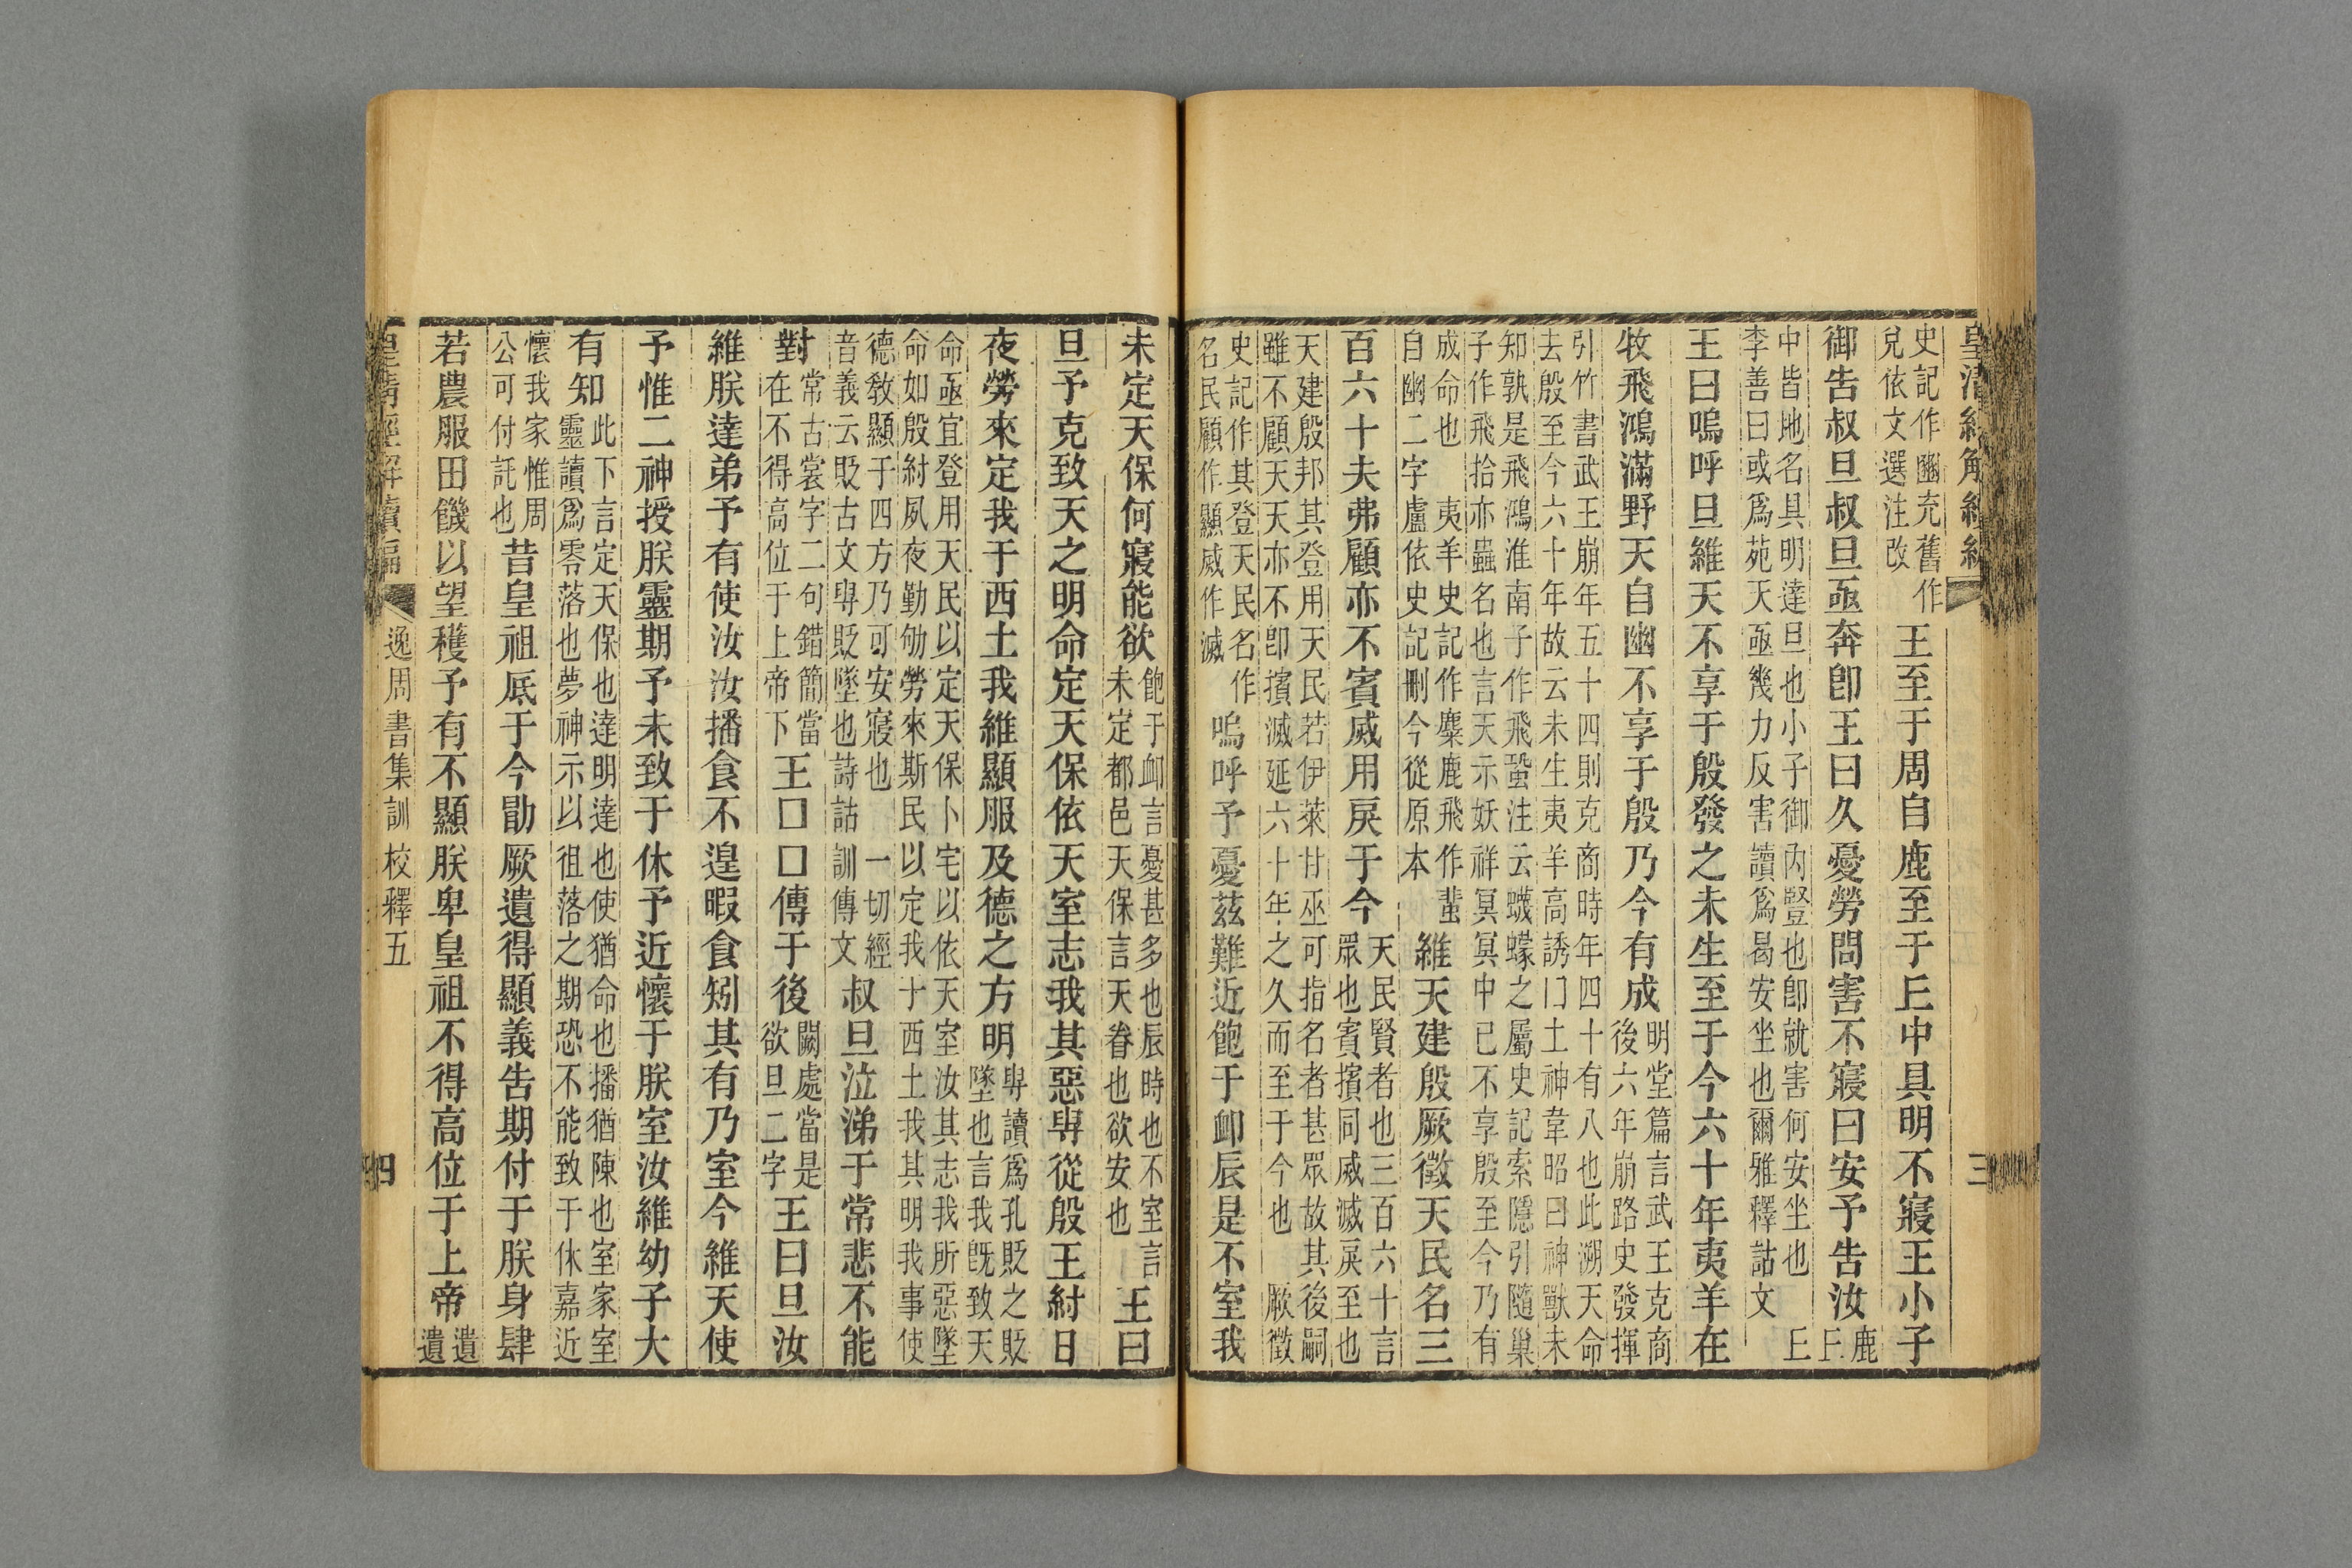 皇清經解續編
三
史記作豳充舊作兌依文選注改王至于周自鹿至于丘中具明不寢王小子
御告叔旦叔旦亟奔卽王曰久憂勞問害不寢曰安予告汝鹿丘
中皆地名具明達旦也小子御內豎也卽就害何安坐也 丘李善曰或爲苑天亟幾力反害讀爲曷安坐也爾雅釋詁文
王曰嗚呼旦維天不享于殷發之未生至于今六十年夷羊在
牧飛鴻滿野天自幽不享于殷乃今有成明堂篇言武王克商後六年崩路史發揮
引竹書武王崩年五十四則克商時年四十有八也此溯天命去殷至今六十年故云未生夷羊高誘曰土神韋昭曰神獸未
知孰是飛鴻淮南子作飛蛩注云蠛蠓之屬史記索隱引隨巢子作飛拾亦蟲名也言天示妖祥冥冥中已不享殷至今乃有
成命也 夷羊史記作麋鹿飛作蜚自幽二字盧依史記刪今從原本維天建殷厥徵天民名三
百六十夫弗顧亦不賓烕用戾于今天民賢者也三百六十言眾也賓擯同烕滅戾至也
天建殷邦其登用天民若伊萊甘巫可指名者甚眾故其後嗣雖不顧天天亦不卽擯滅延六十年之久而至于今也 厥徵
史記作其登天民名作名民顧作顯烕作滅嗚呼予憂茲難近飽于卹辰是不室我
未定天保何寢能欲飽于卹言憂甚多也辰時也不室言未定都邑天保言天眷也欲安也王曰
旦予克致天之明命定天保依天室志我其惡從殷王紂日
夜勞來定我于西土我維顯服及德之方明讀爲孔貶之貶墜也言我旣致天
命亟宜登用天民以定天保卜宅以依天室汝其志我所惡墜命如殷紂夙夜勤劬勞來斯民以定我于西土我其明我事使
德敎顯于四方乃可安寢也 一切經音義云貶古文貶墜也詩詁訓傳文叔旦泣涕于常悲不能
對常古裳字二句錯簡當在不得高位于上帝下王囗囗傳于後闕處當是欲旦二字王曰旦汝
維朕達弟予有使汝汝播食不遑暇食矧其有乃室今維天使
予惟二神授朕靈期予未致于休予近懷于朕室汝維幼子大
有知此下言定天保也達明達也使猶命也播猶陳也室家室靈讀爲零落也夢神示以徂落之期恐不能致于休嘉近
懷我家惟周公可付託也昔皇祖厎于今勖厥遺得顯義告期付于朕身肆
若農服田饑以望穫予有不顯朕卑皇祖不得高位于上帝遺遺
皇清經解續編 逸周書集訓校釋五 四